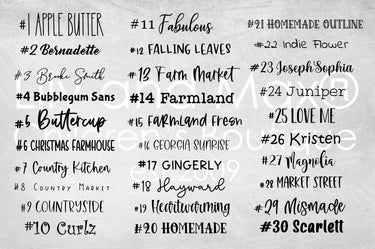 #1 APPLE BUTTER
#2 Bernadette
#3 Brooke Smith
#4 Bubblegum Sans
#5 Buttercup
#6 CHRISTMAS FARMHOUSE
#7 Country Kitchen
#8 COUNTRY MARKET
#9 COUNTRYSIDE
#10 Curlz
#11 Fabulous
#12 FALLING LEAVES
#13 Farm Market
#14 Farmland
#15 FARMLAND FRESH
#16 GEORGIA SUNRISE
#17 GINGERLY
#18 Hayward
#19 Heartwarming
#20 HOMEMADE
#21 HOMEMADE OUTLINE
#22 Indie Flower
#23 Joseph Sophia
#24 Juniper
#25 LOVE ME
#26 Kristen
#27 Magnolia
#28 MARKET STREET
#29 Mismade
#30 Scarlett